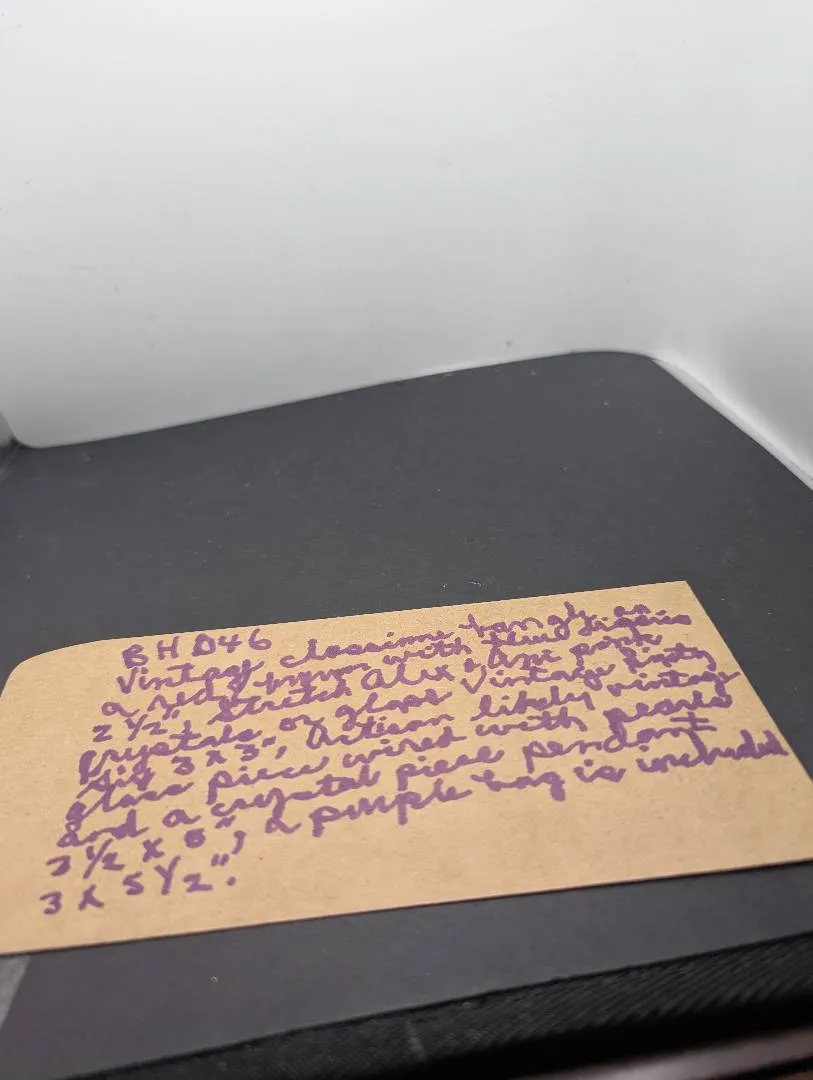 BHD46
Vintage cloesinne bangle on
a red brown with blue
2 1/2", stretch Alex & Ani pink
crystals or glass Vintage
3 x 3", Artisan likely vintage
glass piece wired with pearls
and a crystal piece pendant
2 1/2 x 5", a purple bag is included
3 x 5 1/2".